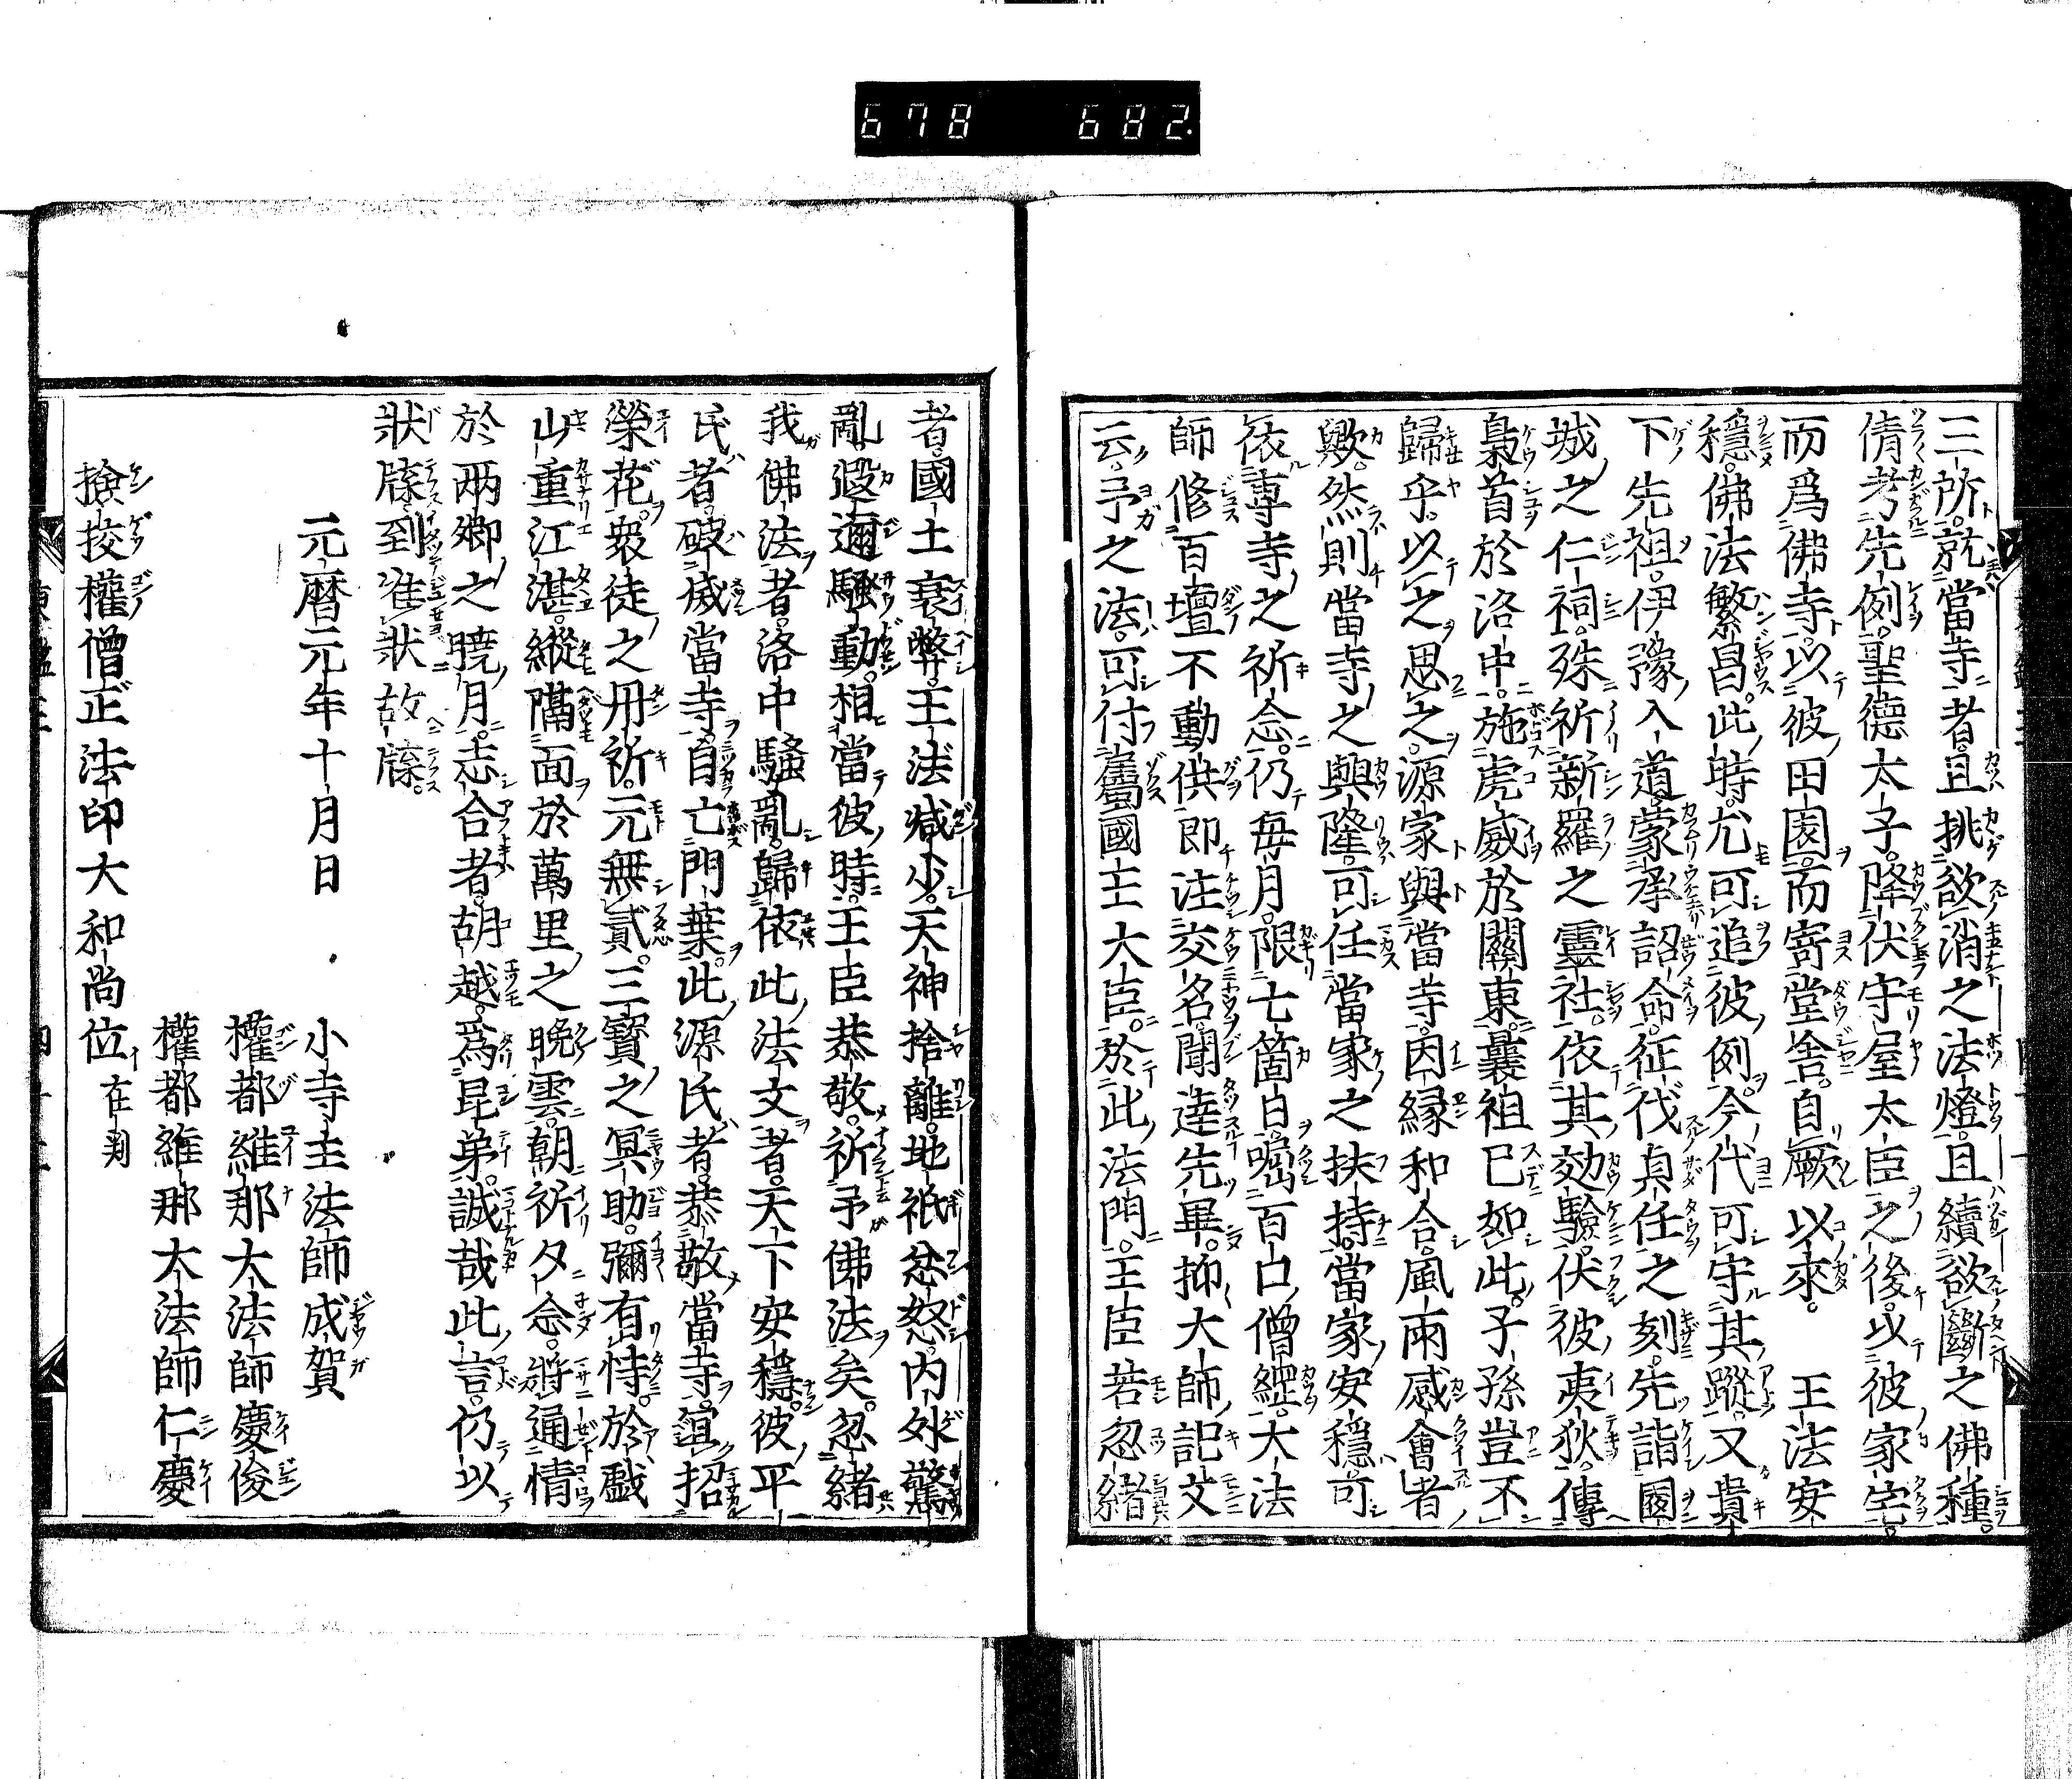 678 682
三所就當寺者且挑欲消之法燈且續欲斷之佛種。
倩考先例。聖德太子。降伏守屋太臣之後。以彼家宅。
而爲佛寺。以彼田園。而寄堂舍。自厥以來。王法安
穩。佛法繁昌。此時。尤可追彼例。今代可守其蹤。又貴
下先祖。伊豫入道蒙承詔命。征伐貞任之刻。先詣園
城之仁祠。殊祈新羅之靈社。依其効驗。伏彼夷狄。傳
梟首於洛中。施虎威於關東。曩祖已如此。子孫豈不
歸乎。以之思之。源家與當寺。因縁和合。風雨感會者
歟。然則當寺之興隆。可任當家之扶持。當家安穩。可
依專寺之祈念。仍毎月。限七箇日。囑百口僧經。大法
師修百壇不動供即注交名。聞達先畢。抑大師記文
云。予之法。可付屬國王大臣。於此法門。王臣若忽緒
者。國土衰弊。王法减少。天神捨離。地祇忿怒。内外驚
亂。遐邇騷動。相當彼時。王臣恭敬。祈予佛法矣。忽緒
我佛法者。洛中騷亂。歸依此法文者。天下安穩。彼平
氏者。破滅當寺。自亡門葉。此源氏者。恭敬當寺。宜招
榮花。衆徒之丹祈。元無貳。三寶之冥助。彌有恃。於戲
山重江湛。縱隔面於萬里之晩雲。朝祈夕念。將通情
於兩郷之曉月。志合者。胡越。爲昆弟。誠哉此言。仍以
狀牒到准狀故牒。
元曆元年十月日 小寺主法師成賀
權都維那大法師慶俊
權都維那大法師仁慶
撿挍權僧正法印大和尚位在判